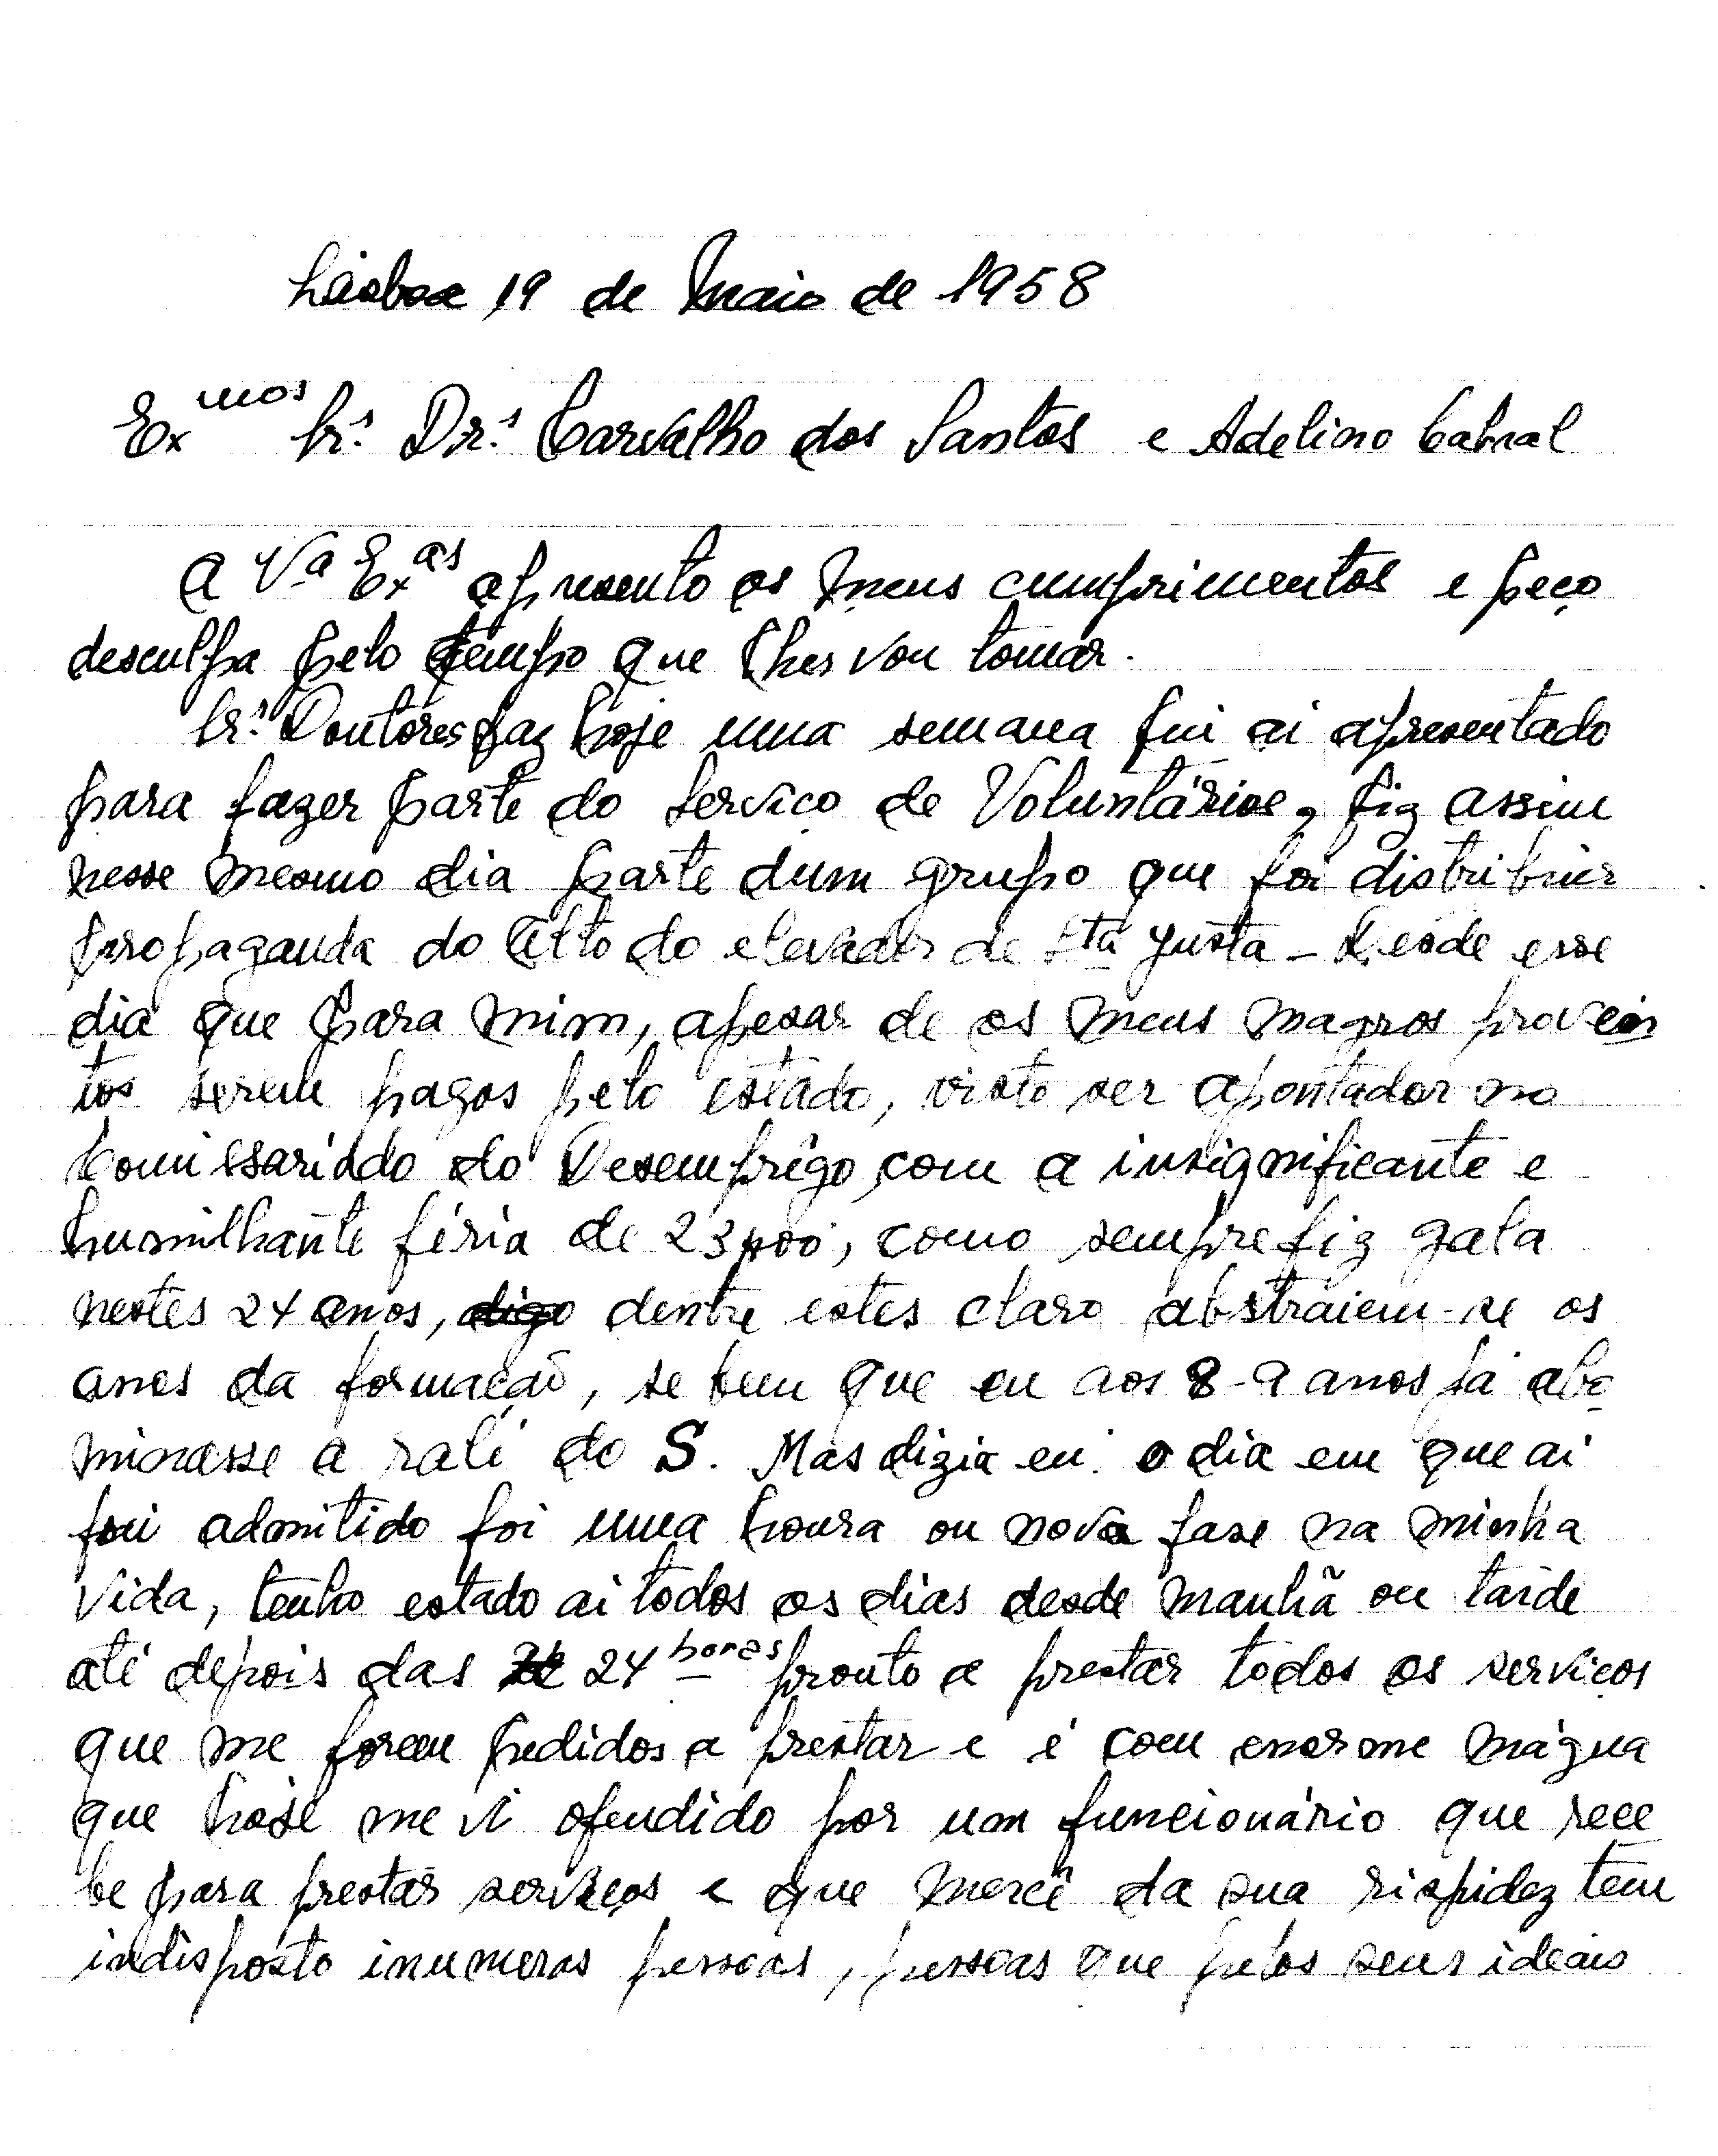 Lisboa 19 de Maio de 1958
Ex mos Srs. Drs. Carvalho dos Santos e Adelino Cabral
A Va Exas apresento os meus cumprimentos e peço
desculpa pelo tempo que lhes vou tomar.
Srs. Doutores faz hoje uma semana fui ai apresentado
para fazer parte do Serviço de Voluntários, fiz assim
nesse mesmo dia parte dum grupo que foi distribuir
propaganda do Alto do elevador de Sta Justa - Desde esse
dia que para mim, apesar de os meus magros provein
tos serem pagos pelo estado, visto ser apontador no
Comissariado do Desemprêgo, com a insignificante e
humilhante féria de 23$00, como sempre fiz gala
nestes 24 anos, digo dentre estes claro abstraiem-se os
anos da formação, se bem que eu aos 8-9 anos já abo
minasse a ralé do S. Mas dizia eu: o dia em que ai
fui admitido foi uma honra ou nova fase na minha
vida, tenho estado ai todos os dias desde manhã ou tarde
até depois das 24 horas pronto a prestar todos os serviços
que me forem pedidos a prestar e é com enorme mágua
que hoje me vi ofendido por um funcionário que rece
be para prestar serviços e que mercê da sua rispidez tem
indisposto inumeras pessoas, pessoas que pelos seus ideais